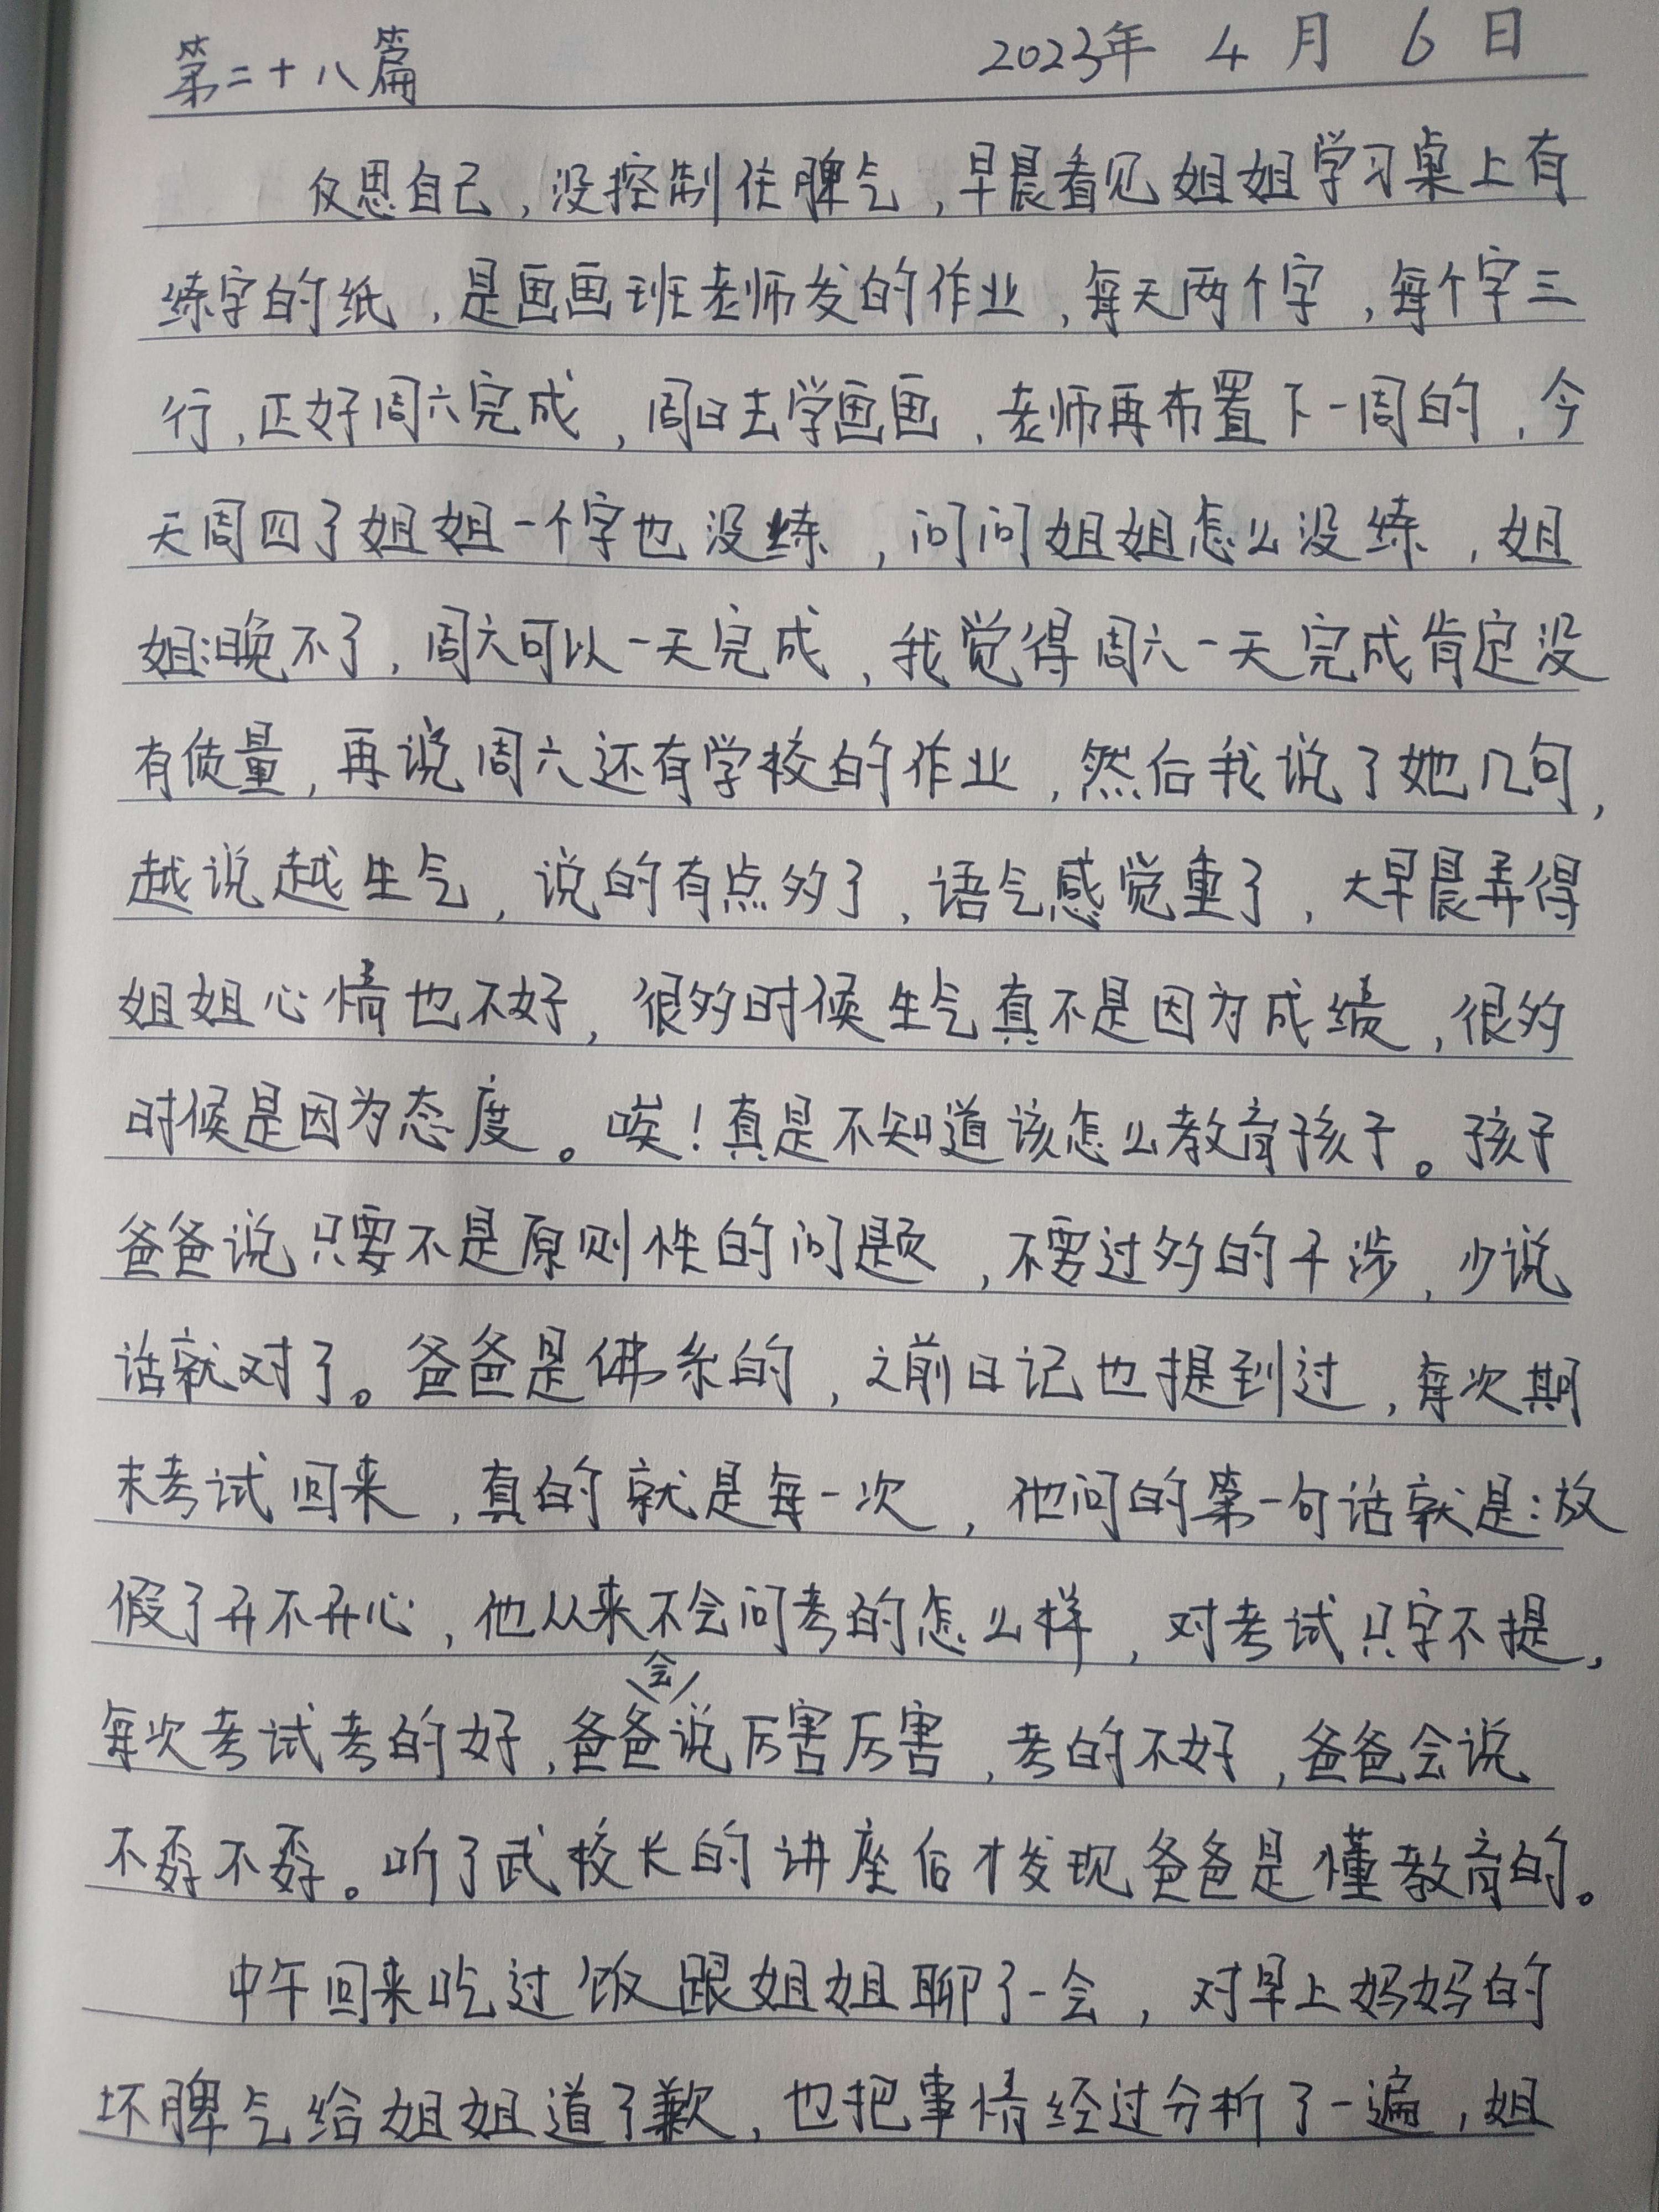 第二十八篇 2023年 4月 6日
反思自己，没控制住脾气，早晨看见姐姐学习桌上有
练字的纸，是画画班老师发的作业，每天两个字，每个字三
行，正好周六完成，周日去学画画，老师再布置下一周的，今
天周四了姐姐一个字也没练，问问姐姐怎么没练，姐
姐：晚不了，周六可以一天完成，我觉得周六一天完成肯定没
有质量，再说周六还有学校的作业，然后我说了她几句，
越说越生气，说的有点多了，语气感觉重了，大早晨弄得
姐姐心情也不好，很多时候生气真不是因为成绩，很多
时候是因为态度。唉！真是不知道该怎么教育孩子。孩子
爸爸说只要不是原则性的问题，不要过多的干涉，少说
话就对了。爸爸是佛系的，之前日记也提到过，每次期
末考试回来，真的就是每一次，他问的第一句话就是：放
假了开不开心，他从来不会问考的怎么样，对考试只字不提，
每次考试考的好，爸爸会说厉害厉害，考的不好，爸爸会说
不孬不孬。听了武校长的讲座后才发现爸爸是懂教育的。
中午回来吃过饭跟姐姐聊了一会，对早上妈妈的
坏脾气给姐姐道了歉，也把事情经过分析了一遍，姐